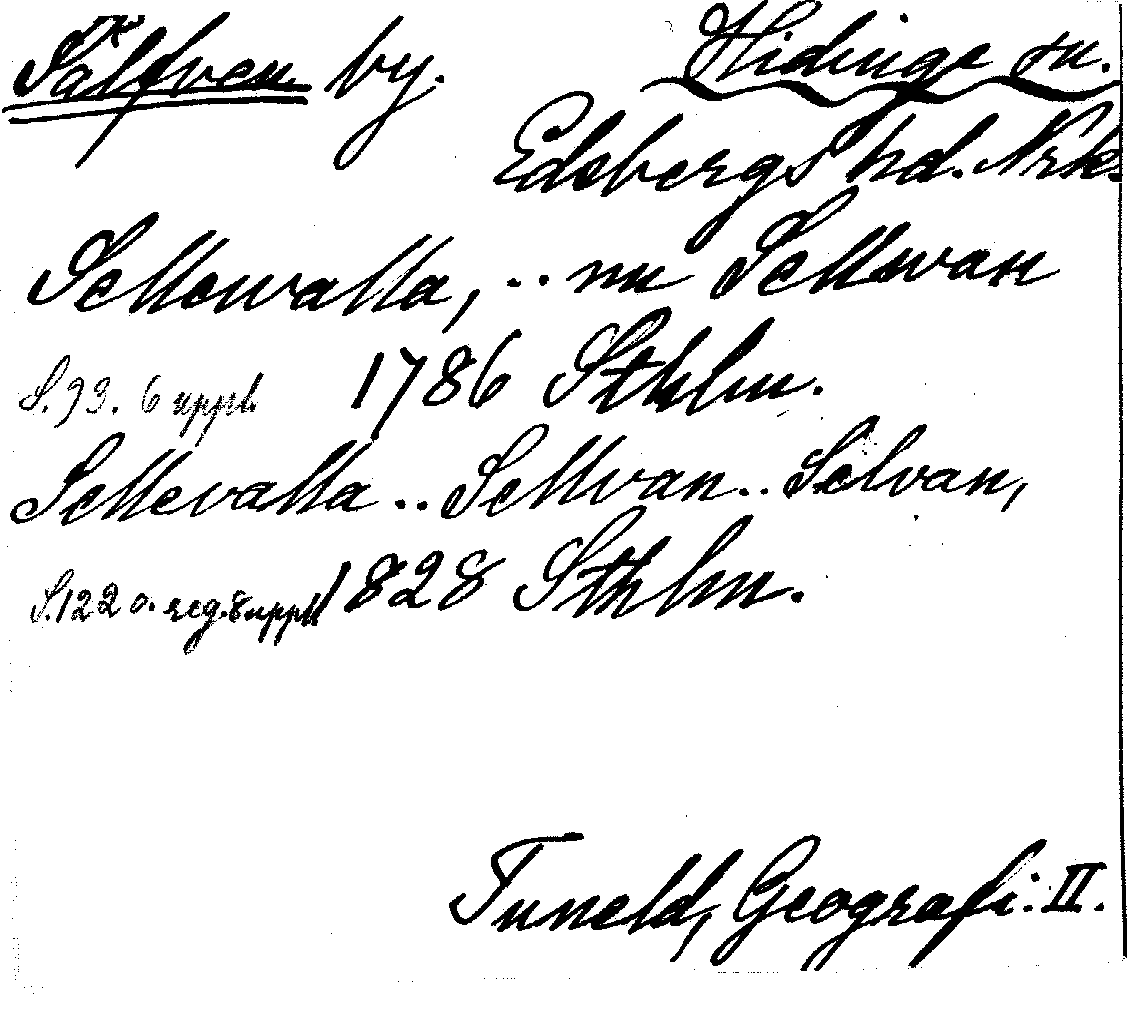 Sälfven by. Hidinge sn.
Edsbergs hd. Nrk.
Sellewalla, .. nu Sellwan
S. 93. 6 uppl. 1786 Sthlm.
Sellevalla .. Sellvan .. Selvan,
S. 122 o. reg. 8 uppl 1828 Sthlm.
Tuneld, Geografi. II.